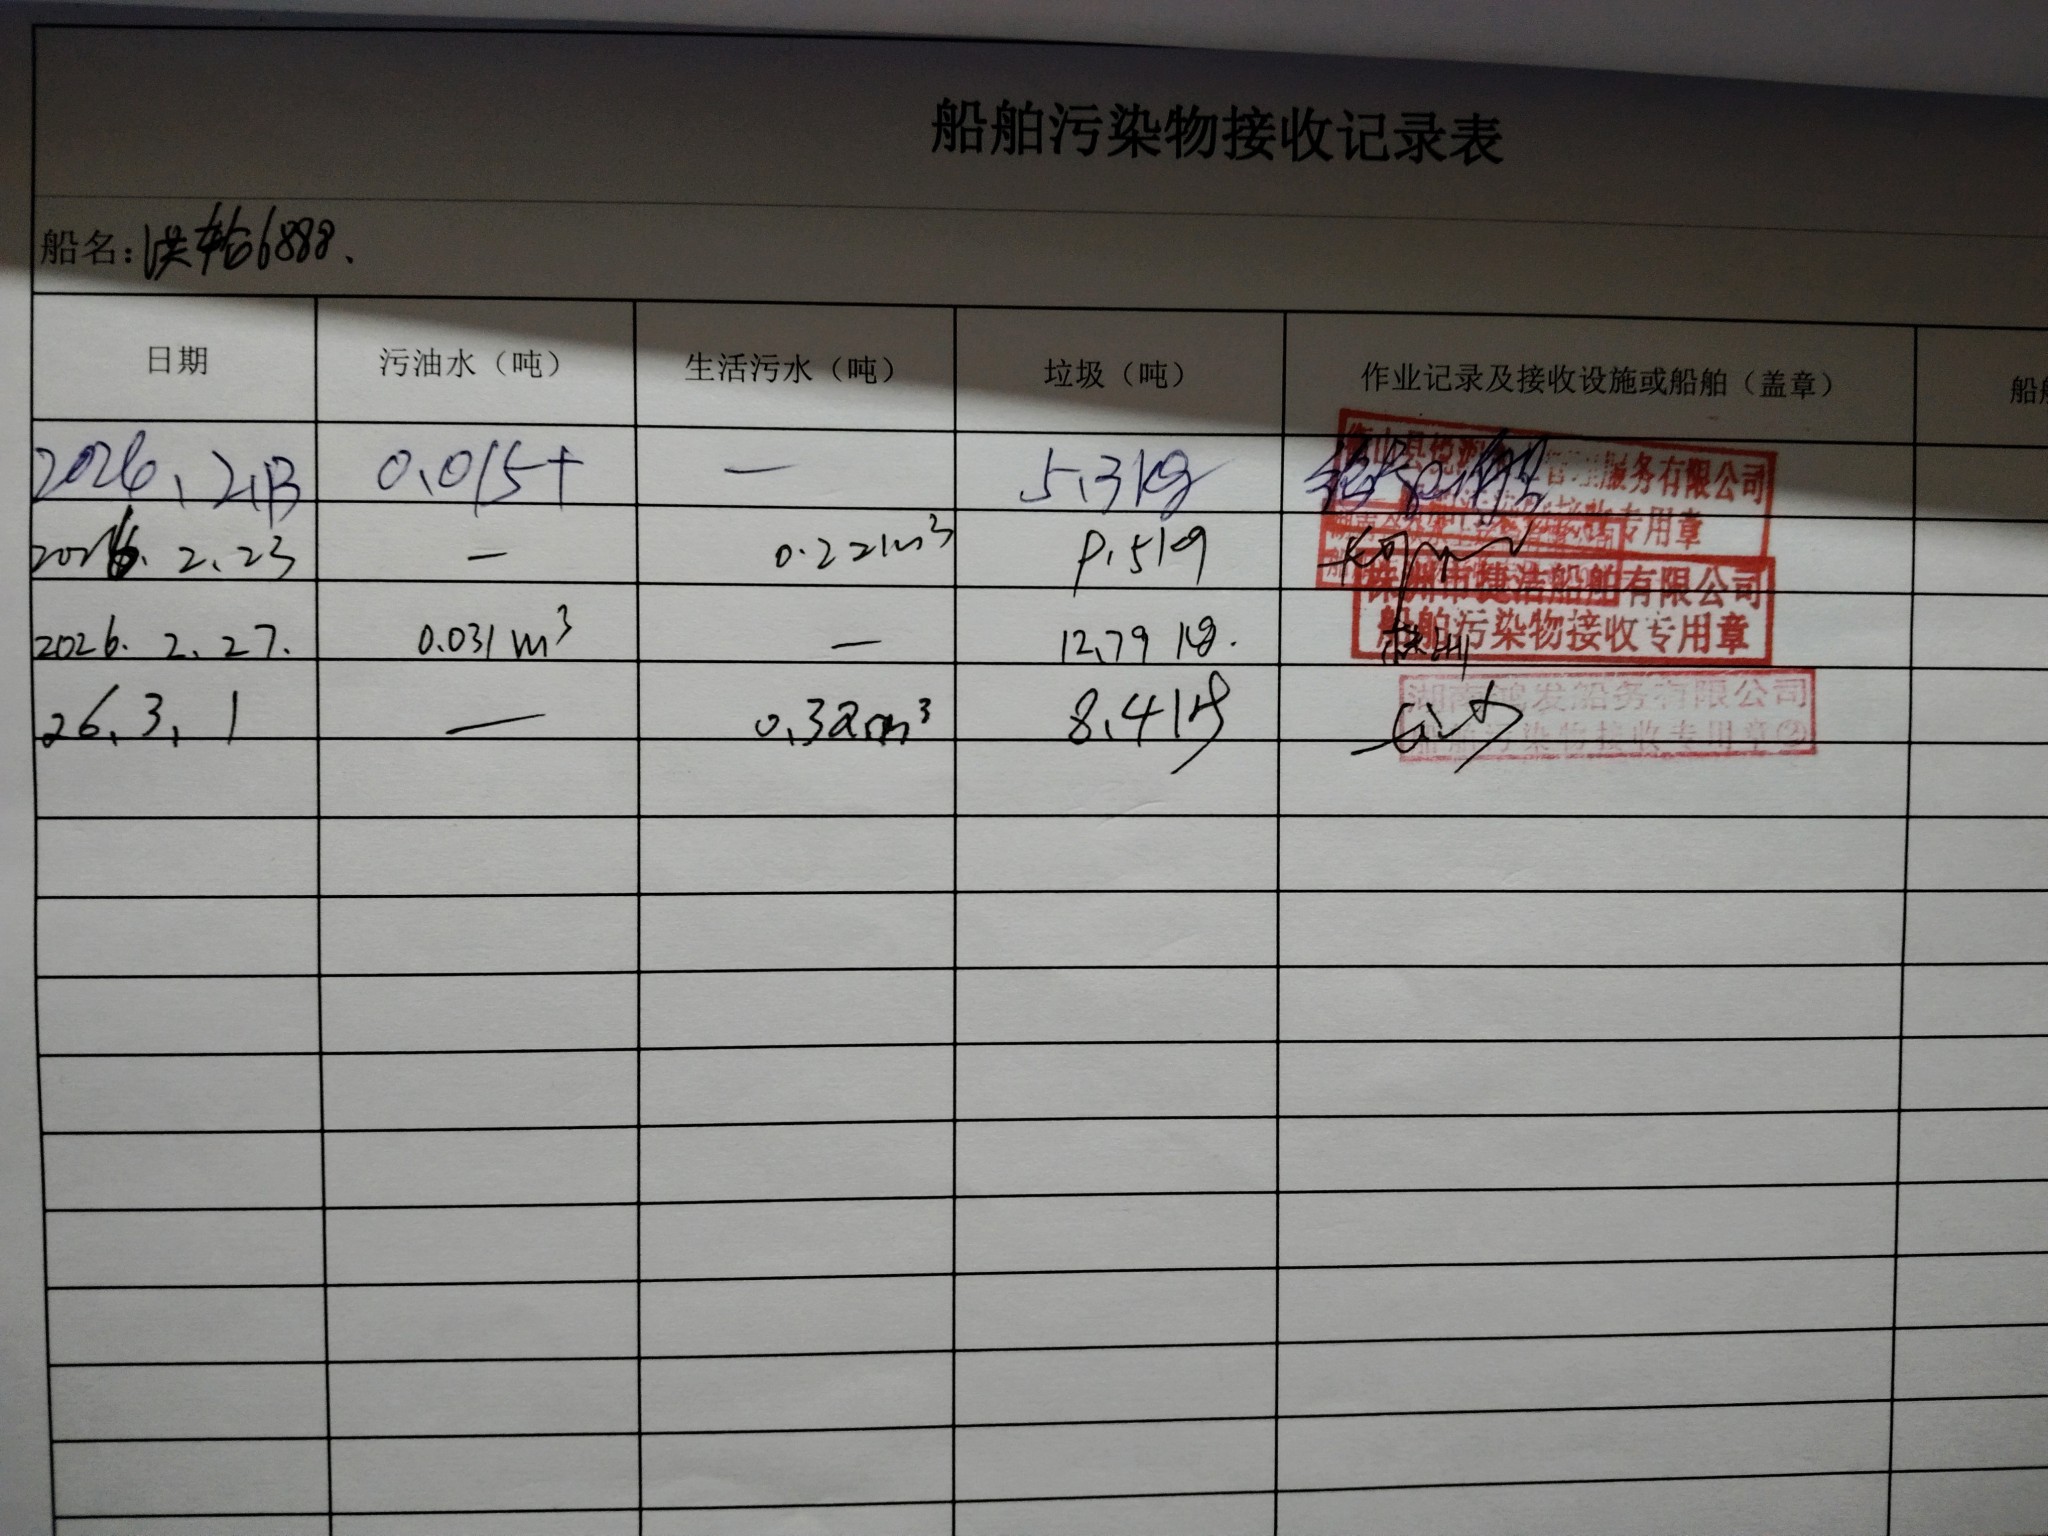 船舶污染物接收记录表
船名：洪裕6888.
日期 污油水（吨） 生活污水（吨） 垃圾（吨） 作业记录及接收设施或船舶（盖章） 船
2026.2.13 0.015t — 5.3kg
服务有限公司
专用章
2026.2.23 — 0.221m³ 9.5kg
2026.2.27. 0.031m³ — 12.79kg. 株洲
株洲市捷洁船舶有限公司
船舶污染物接收专用章
26.3.1 — 0.32m³ 8.4kg
湖南鸿发船务有限公司
船舶污染物接收专用章②